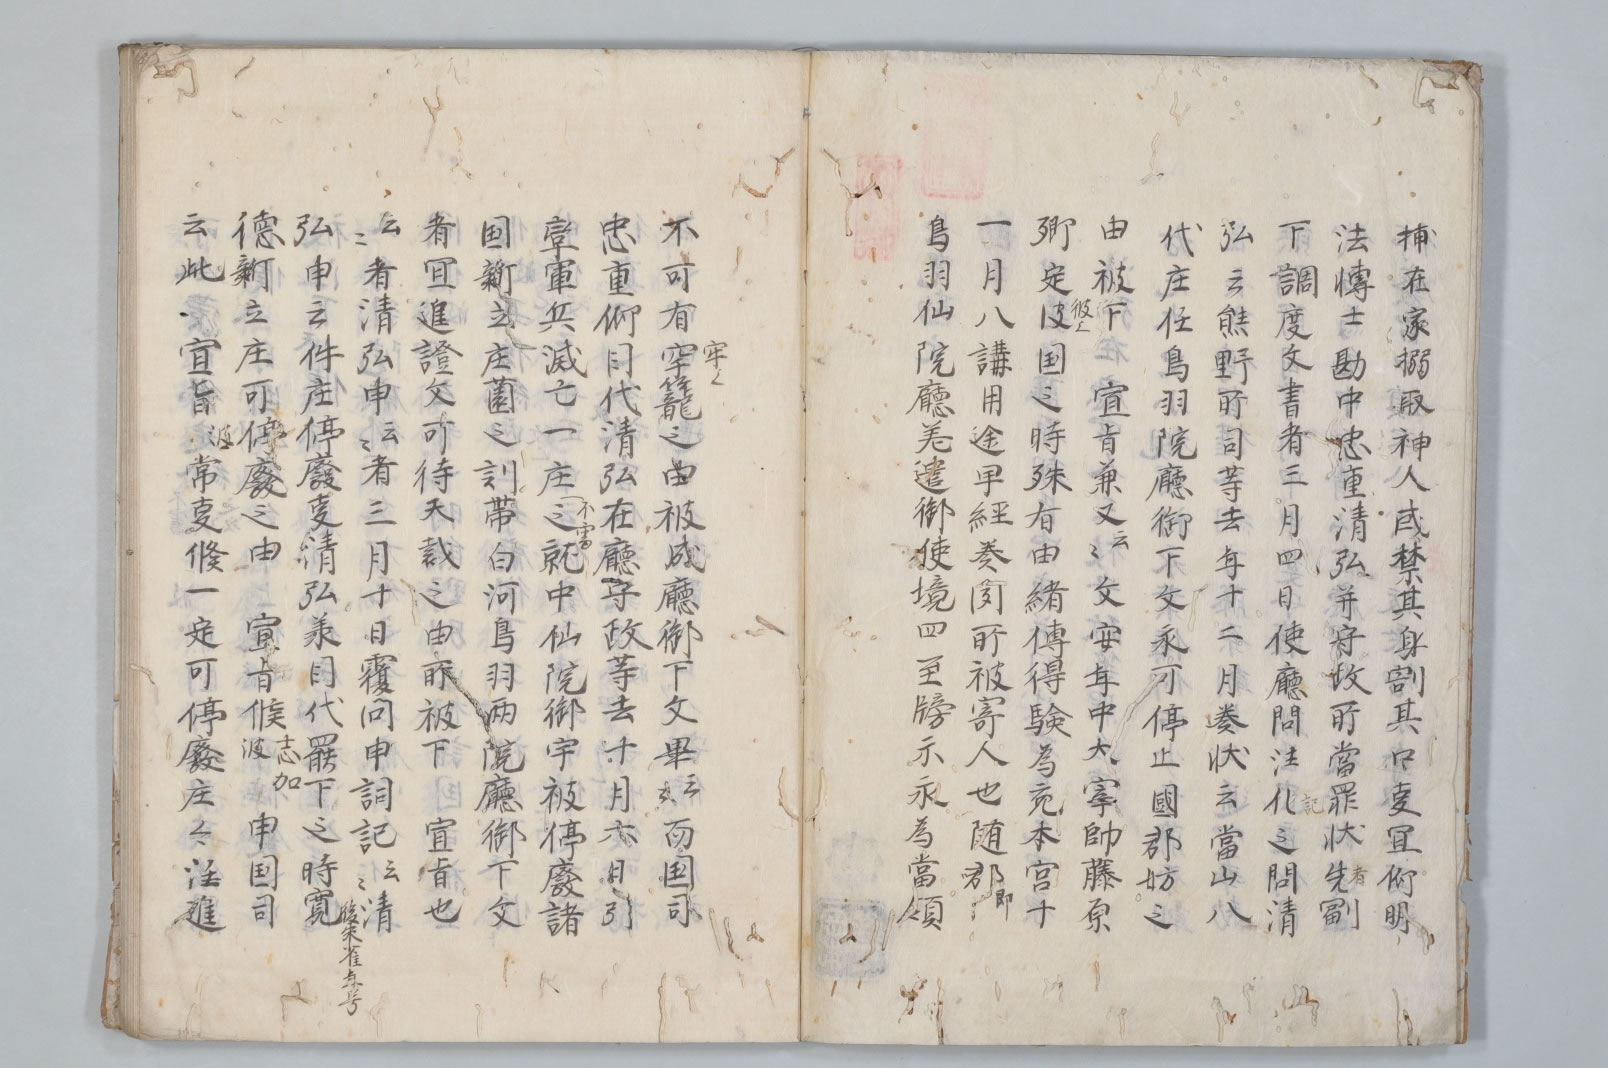 捕在家搦取神人或禁其身割其口事宜仰明
法博士勘中忠重清弘并守政所當罪状者先副
下調度文書者三月四日使廳問注化記之問清
弘云熊野所司等去年十二月奏状云當山八
代庄任鳥羽院廳御下文永可停止國郡妨之
由被下宣旨兼又云々文安年中大宰帥藤原
卿定彼国之時殊有由緒傳得驗為宛本宮十
一月八講用途甲經巻図所被寄人也随郡即
鳥羽仙院廳差遣御使境四至牓示永為當領
不可有牢籠之由被成廳御下文畢云々而国司
忠重仰目代清弘在廳守政等去十月六日引
率軍兵滅亡一庄不審之就中仙院御宇被停廢諸
国新立庄薗之刻帶白河鳥羽両院廳御下文
者宜進證文可待天裁之由所被下宣旨也
云々者清弘申云々者三月十日覆問申詞記云々清
弘申云件庄停廢事清弘兼目代罷下之時寛
後朱雀年号
徳新立庄可停廢之由宣旨候波申国司
志加
云此宣旨波常事候一定可停廢庄々注進